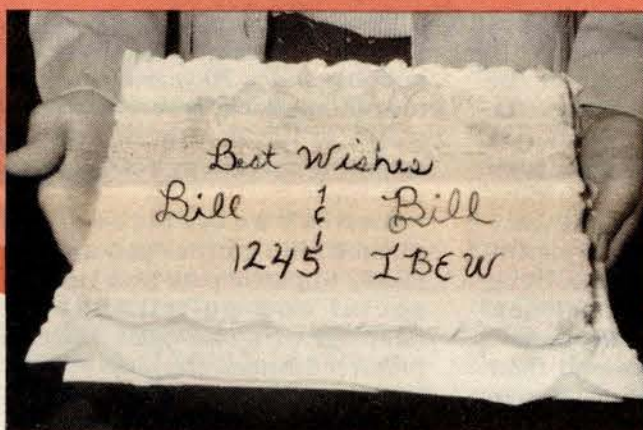 Best Wishes
Bill & Bill
1245 IBEW